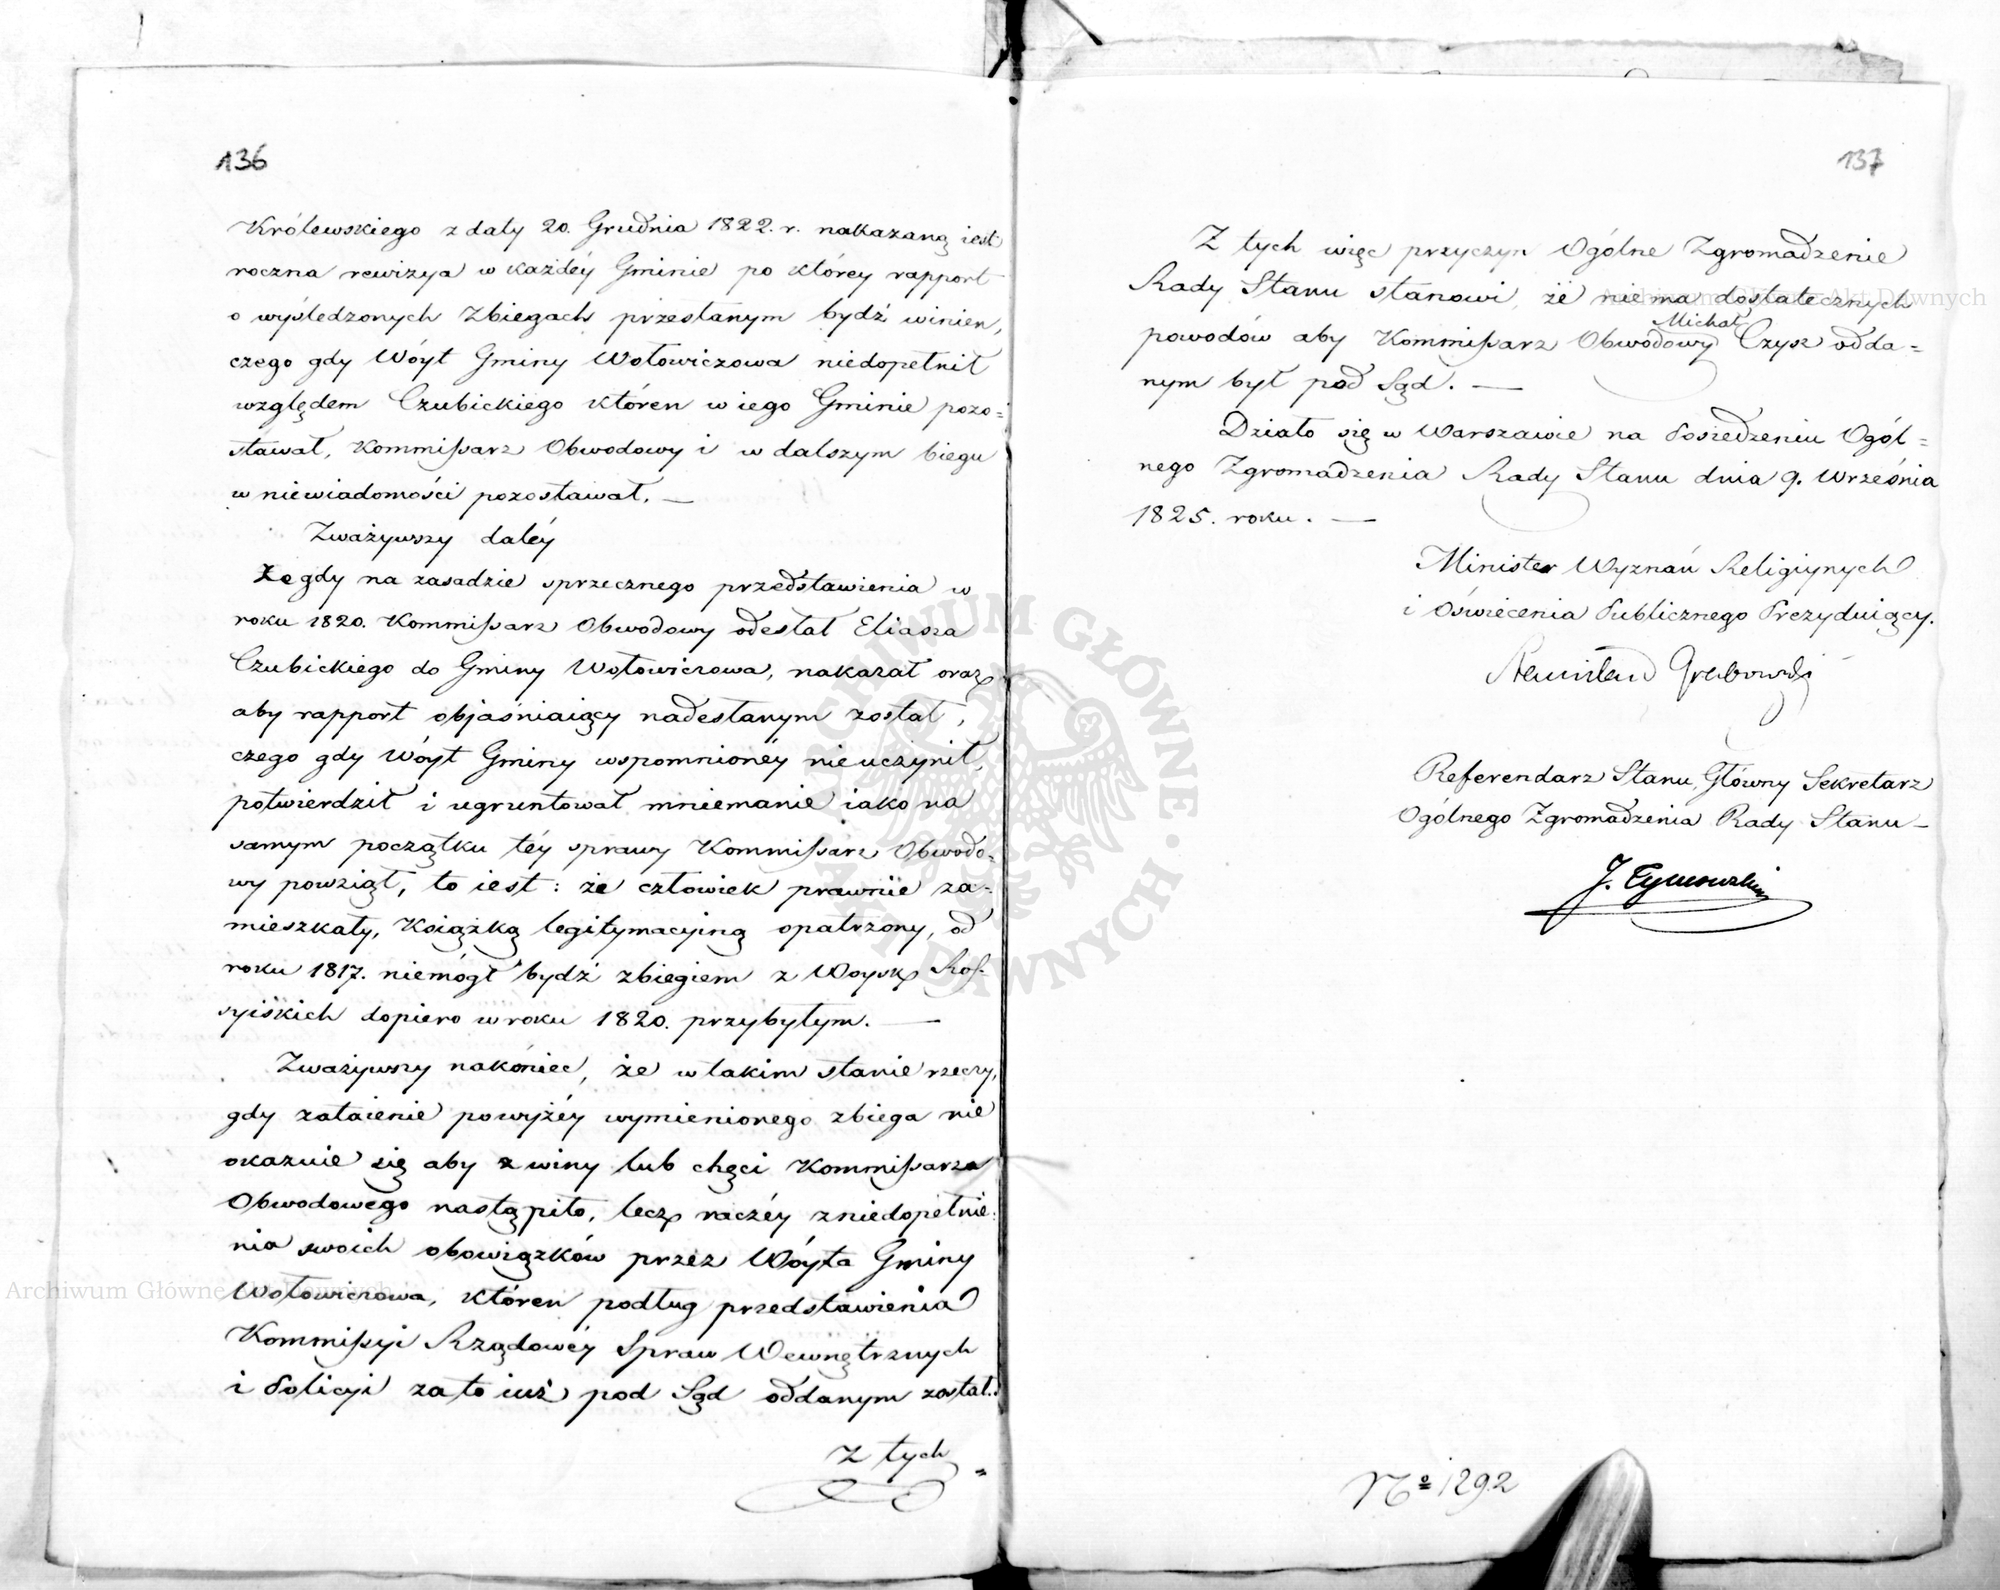 136
Królewskiego z daty 20. Grudnia 1822. r. nakazaną iest
roczna rewizya w każdéy Gminie po którey rapport
o wyśledzonych Zbiegach przesłanym bydź winien,
czego gdy Wóyt Gminy Wołowiczowa niedopełnił
względem Czubickiego któren w iego Gminie pozo=
stawał, Kommissarz Obwodowy i w dalszym biegu
w niewiadomości pozostawał. —
Zważywszy daléy
Że gdy na zasadzie sprzecznego przedstawienia w
roku 1820. Kommissarz Obwodowy odesłał Eliasza
Czubickiego do Gminy Wołowiczowa, nakazał oraz
aby rapport objaśniaiący nadesłanym został,
czego gdy Wóyt Gminy wspomnionéy nieuczynił,
potwierdził i ugruntował mniemanie iako na
samym początku téy sprawy Kommissarz Obwodo=
wy powziął, to iest: że człowiek prawnie za=
mieszkały, Książką legitymacyjną opatrzony, od
roku 1817. niemógł bydź zbiegiem z Woysk Ros=
syiskich dopiero w roku 1820. przybyłym. —
Zważywszy nakóniec, że w takim stanie rzeczy,
gdy zataienie powyżéy wymienionego zbiega nie
okazuie się aby z winy lub chęci Kommissarza
Obwodowego nastąpiło, lecz raczéy z niedopełnie=
nia swoich obowiązków przez Wóyta Gminy
Wołowiczowa, któren podług przedstawienia
Kommissyi Rządowéy Spraw Wewnętrznych
i Policyi za to iuż pod Sąd oddanym został.
Z tych =
137
Z tych więc przyczyn Ogólne Zgromadzenie
Rady Stanu stanowi, że niema dostatecznych
powodów aby Kommissarz Obwodowy Michał Czysz odda=
nym był pod Sąd. —
Działo się w Warszawie na Posiedzeniu Ogól=
nego Zgromadzenia Rady Stanu dnia 9. Września
1825. roku. —
Minister Wyznań Religiynych
i Oświecenia Publicznego Prezyduiący.
Stanisław Grabowski
Referendarz Stanu, Główny Sekretarz
Ogólnego Zgromadzenia Rady Stanu —
J. Tymowski
Nº 1292
ARCHIWUM GŁÓWNE · AKT DAWNYCH ·
Archiwum Główne Akt Dawnych
Archiwum Główne Akt Dawnych